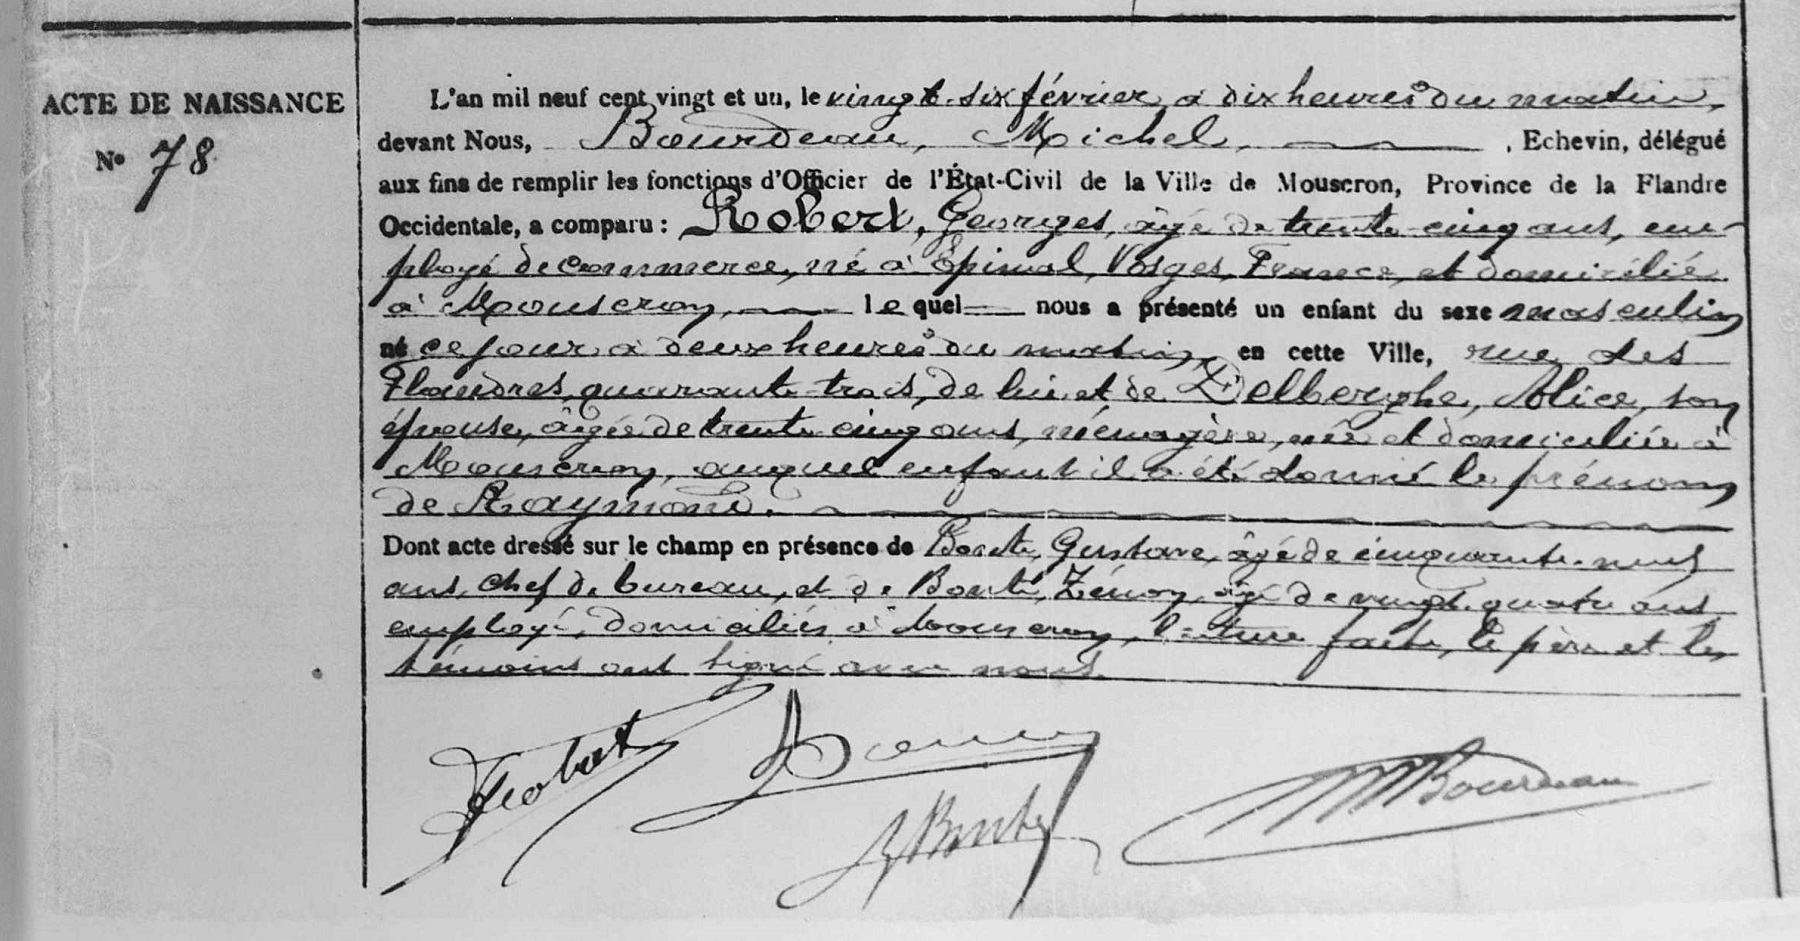 ACTE DE NAISSANCE
N° 78
L'an mil neuf cent vingt et un, le vingt-six février à dix heures du matin,
devant Nous, Bourdeau, Michel, , Echevin, délégué
aux fins de remplir les fonctions d'Officier de l'État-Civil de la Ville de Mouscron, Province de la Flandre
Occidentale, a comparu : Robert, Georges, âgé de trente-cinq ans, em-
ployé de commerce, né à Epinal, Vosges, France, et domicilié
à Mouscron, lequel nous a présenté un enfant du sexe masculin
né ce jour à deux heures du matin, en cette Ville, rue des
Flandres, quarante-trois, de lui et de Delberghe, Alice, son
épouse, âgée de trente cinq ans, ménagère, née et domiciliée à
Mouscron, auquel enfant il a été donné le prénom
de Raymond.
Dont acte dressé sur le champ en présence de Gustave, âgé de cinquante-neuf
ans, chef de bureau, et de Bonte, Zénon, âgé de vingt-quatre ans,
employé, domiciliés à Mouscron, lecture faite, le père et les
témoins ont signé avec nous.
Robert
ZBonte
MBourdeau